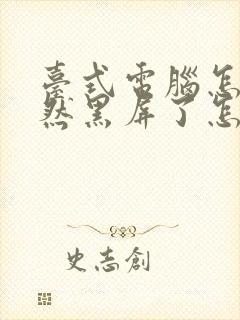 臺式電腦怎
然黑屏了怎
史志創